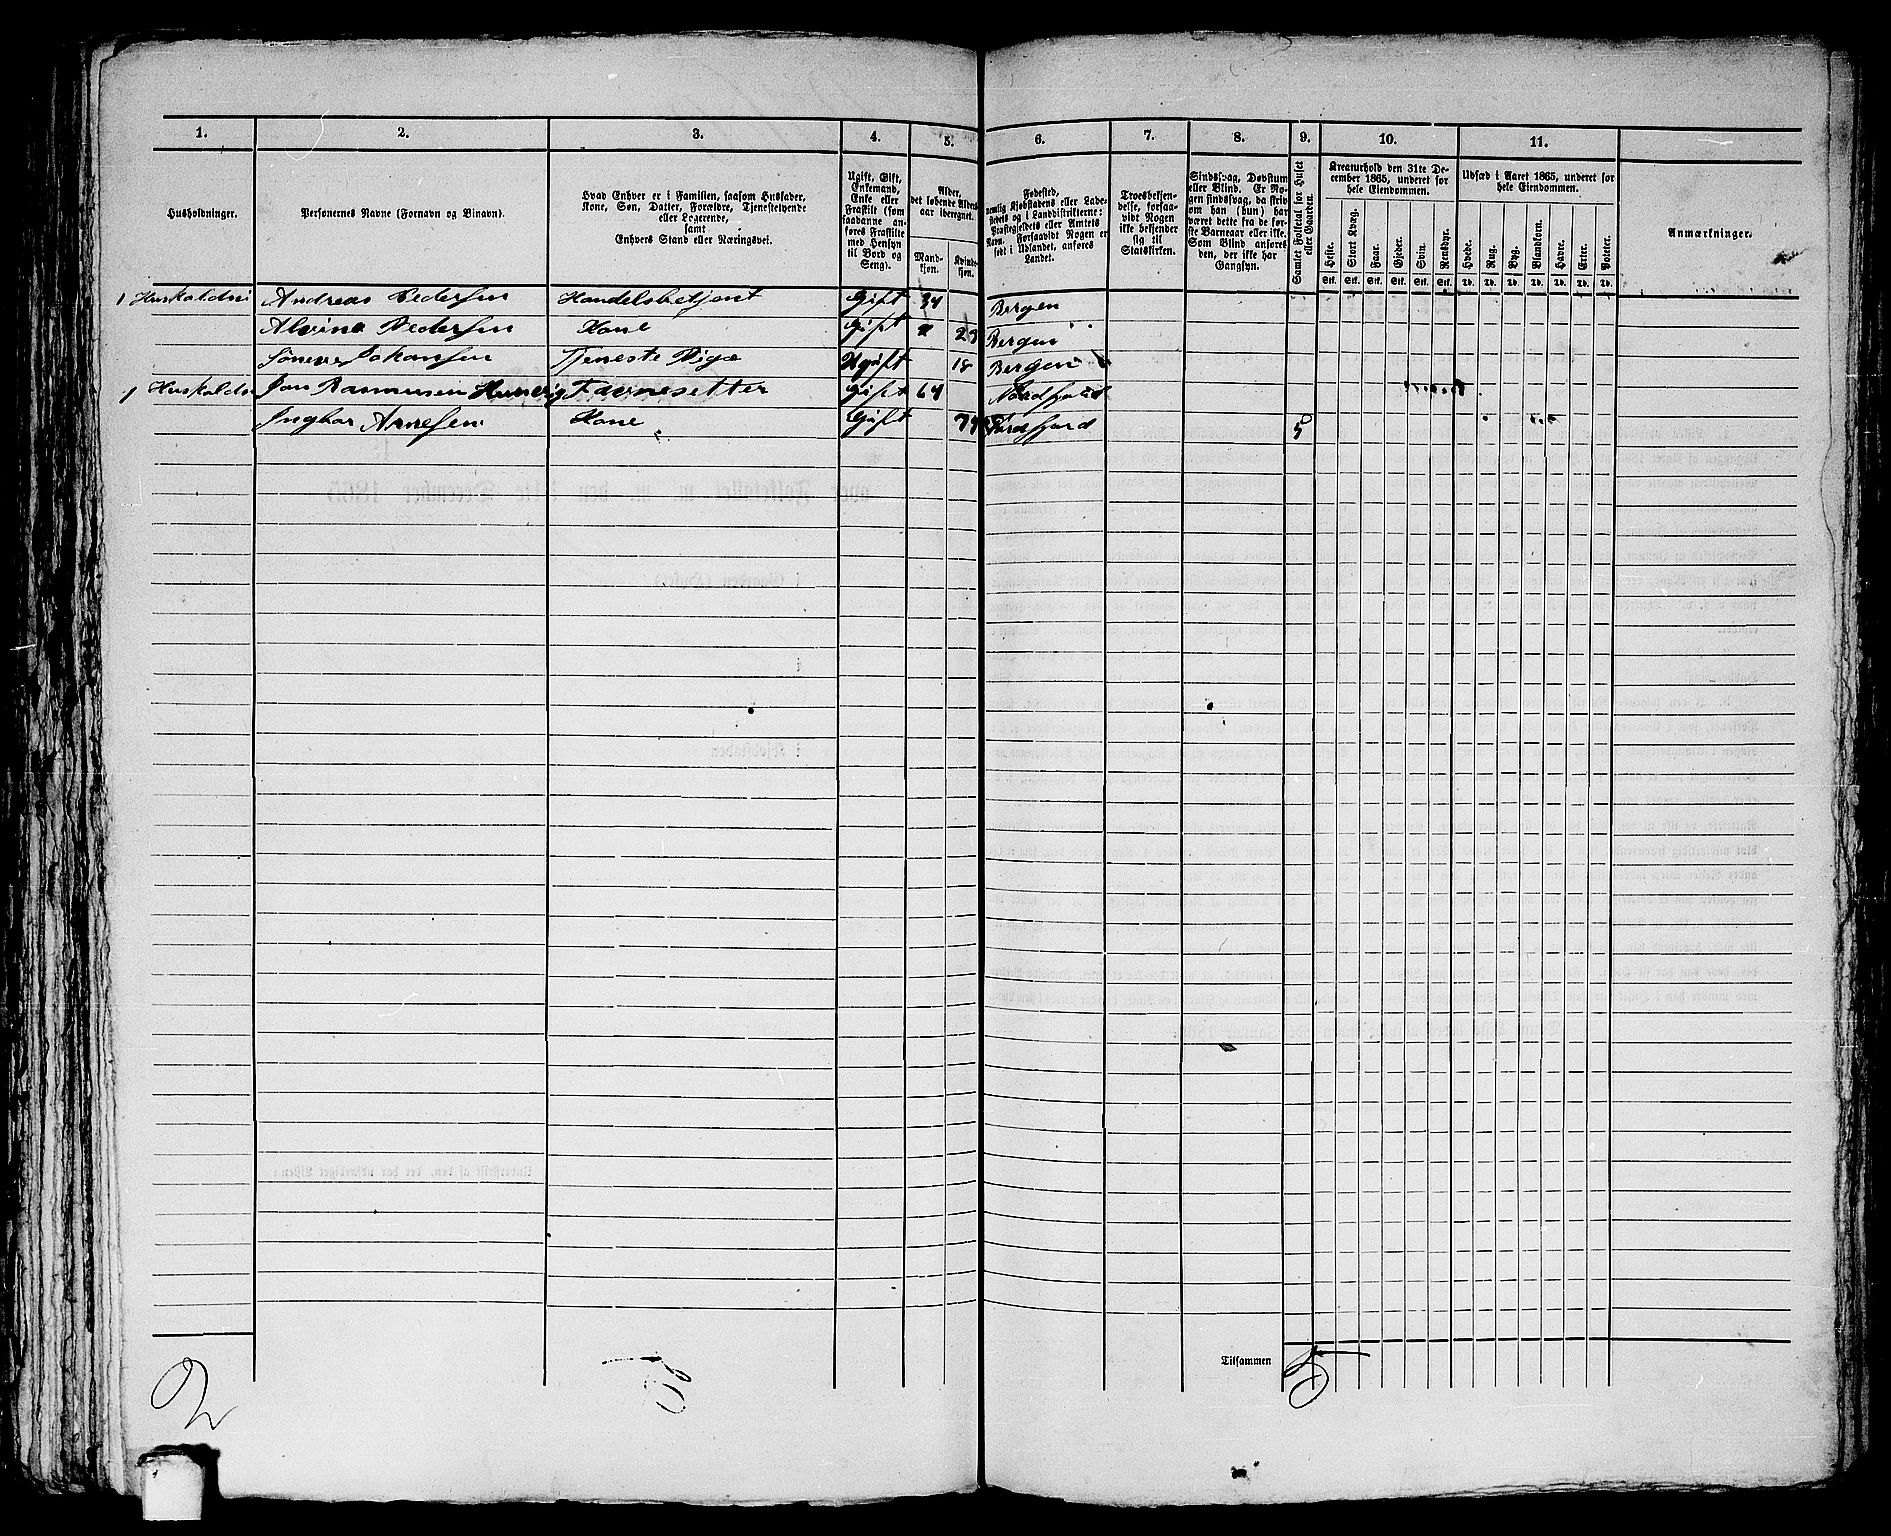 1. 2. 3. 4. 5. 6. 7. 8. 9. 10. 11.
Husholdninger.
Personernes Navne (Fornavn og Binavn).
Hvad Enhver er i Familien, saasom Husfader,
Kone, Søn, Datter, Forældre, Tjenestetyende
eller Logerende,
samt
Enhvers Stand eller Næringsvei.
Ugift, Gift,
Enkemand,
Enke eller
Fraskilt (som
saadanne an-
føres Fraskilte
med Hensyn
til Bord og
Seng).
Alder,
det løbende Alders-
aar iberegnet.
Mand-
kjøn.
Kvinde-
kjøn.
Fødested,
nemlig Kjøbstadens eller Lade-
stedets og i Landdistrikterne:
Præstegjeldets eller Amtets
Navn. Forsaavidt Nogen er
født i Udlandet, anføres
Landet.
Troesbekjen-
delse, forsaa-
vidt Nogen
ikke bekjender
sig til
Statskirken.
Sindssvag, Døvstum
eller Blind. Er No-
gen sindssvag, da skriv
om han (hun) har
været dette fra de før-
ste Barneaar eller ikke.
Som Blind anføres
den, der ikke har
Gangsyn.
Samlet Folketal for Huset
eller Gaarden.
Kreaturhold den 31te De-
cember 1865, underet for
hele Eiendommen.
Heste. Stort Kvæg. Faar. Gjeder. Svin. Rensdyr.
Stk. Stk. Stk. Stk. Stk. Stk.
Udsæd i Aaret 1865, underet for
hele Eiendommen.
Hvede. Rug. Byg. Blandkorn. Havre. Erter. Poteter.
Td. Td. Td. Td. Td. Td. Td.
Anmærkninger.
1 Andreas Pedersen Handelsbetjent Gift 34 Bergen
Alvina Pedersen Kone Gift Bergen
Johansen Tjeneste Pige Ugift 18 Bergen
1 Jon Rasmussen Gift 64 Nordfjord
Arnesen Kone Gift 5
Tilsammen 5
2